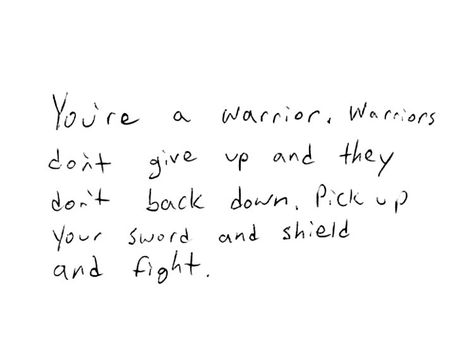 You're a warrior. Warriors
don't give up and they
don't back down. Pick up
your sword and shield
and fight.